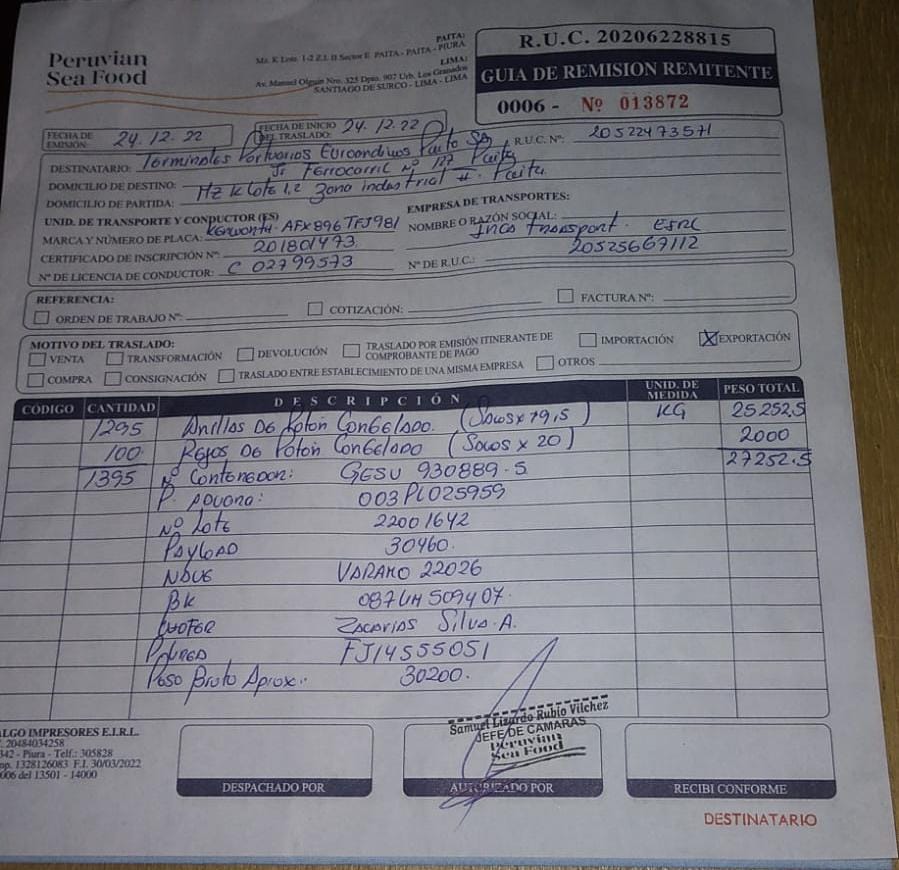 Peruvian
Sea Food
PAITA:
Mz. K Lote. 1-2 Z.I. II Sector E PAITA - PAITA - PIURA
LIMA:
Av. Manuel Olguin Nro. 325 Dpto. 907 Urb. Los Granados
SANTIAGO DE SURCO - LIMA - LIMA
R.U.C. 20206228815
GUIA DE REMISION REMITENTE
0006 - Nº 013872
FECHA DE EMISIÓN: 24.12.22
FECHA DE INICIO DEL TRASLADO: 24.12.22
DESTINATARIO: Terminales Portuarios Euroandinos Paita SA R.U.C. Nº: 20522473571
DOMICILIO DE DESTINO: Jr Ferrocarril Nº 127 Paita
DOMICILIO DE PARTIDA: Mz K Lote 1,2 Zona industrial II. Paita
UNID. DE TRANSPORTE Y CONDUCTOR (ES)
MARCA Y NÚMERO DE PLACA: Kenworth. AFX896 TFJ981
CERTIFICADO DE INSCRIPCIÓN Nº: 201801493
Nº DE LICENCIA DE CONDUCTOR: C 02799573
EMPRESA DE TRANSPORTES:
NOMBRE O RAZÓN SOCIAL: Inca Transport. EIRL
Nº DE R.U.C.: 20525667112
REFERENCIA:
ORDEN DE TRABAJO Nº: COTIZACIÓN: FACTURA Nº:
MOTIVO DEL TRASLADO:
VENTA TRANSFORMACIÓN DEVOLUCIÓN TRASLADO POR EMISIÓN ITINERANTE DE COMPROBANTE DE PAGO IMPORTACIÓN X EXPORTACIÓN
COMPRA CONSIGNACIÓN TRASLADO ENTRE ESTABLECIMIENTO DE UNA MISMA EMPRESA OTROS
CÓDIGO CANTIDAD DESCRIPCIÓN UNID. DE MEDIDA PESO TOTAL
1295 Anillas De Potón Congelado. (Sacos x 19,5) KG 25252,5
100 Rejos De Potón Congelado (Sacos x 20) 2000
1395 Nº Contenedor: GESU 930889-5 27252.5
P. Aduana: 003PL025959
Nº Lote 22001642
Payload 30460.
Nave VARAMO 22026
BK 087LH509407
Chofer Zacarias Silva. A.
FJ14555051
Peso Bruto Aprox.: 30200.
ALGO IMPRESORES E.I.R.L.
20484034258
342 - Piura - Telf.: 305828
mp. 1328126083 F.I. 30/03/2022
006 del 13501 - 14000
Samuel Lizardo Rubio Vilchez
JEFE DE CAMARAS
Peruvian
Sea Food
DESPACHADO POR
AUTORIZADO POR
RECIBI CONFORME
DESTINATARIO